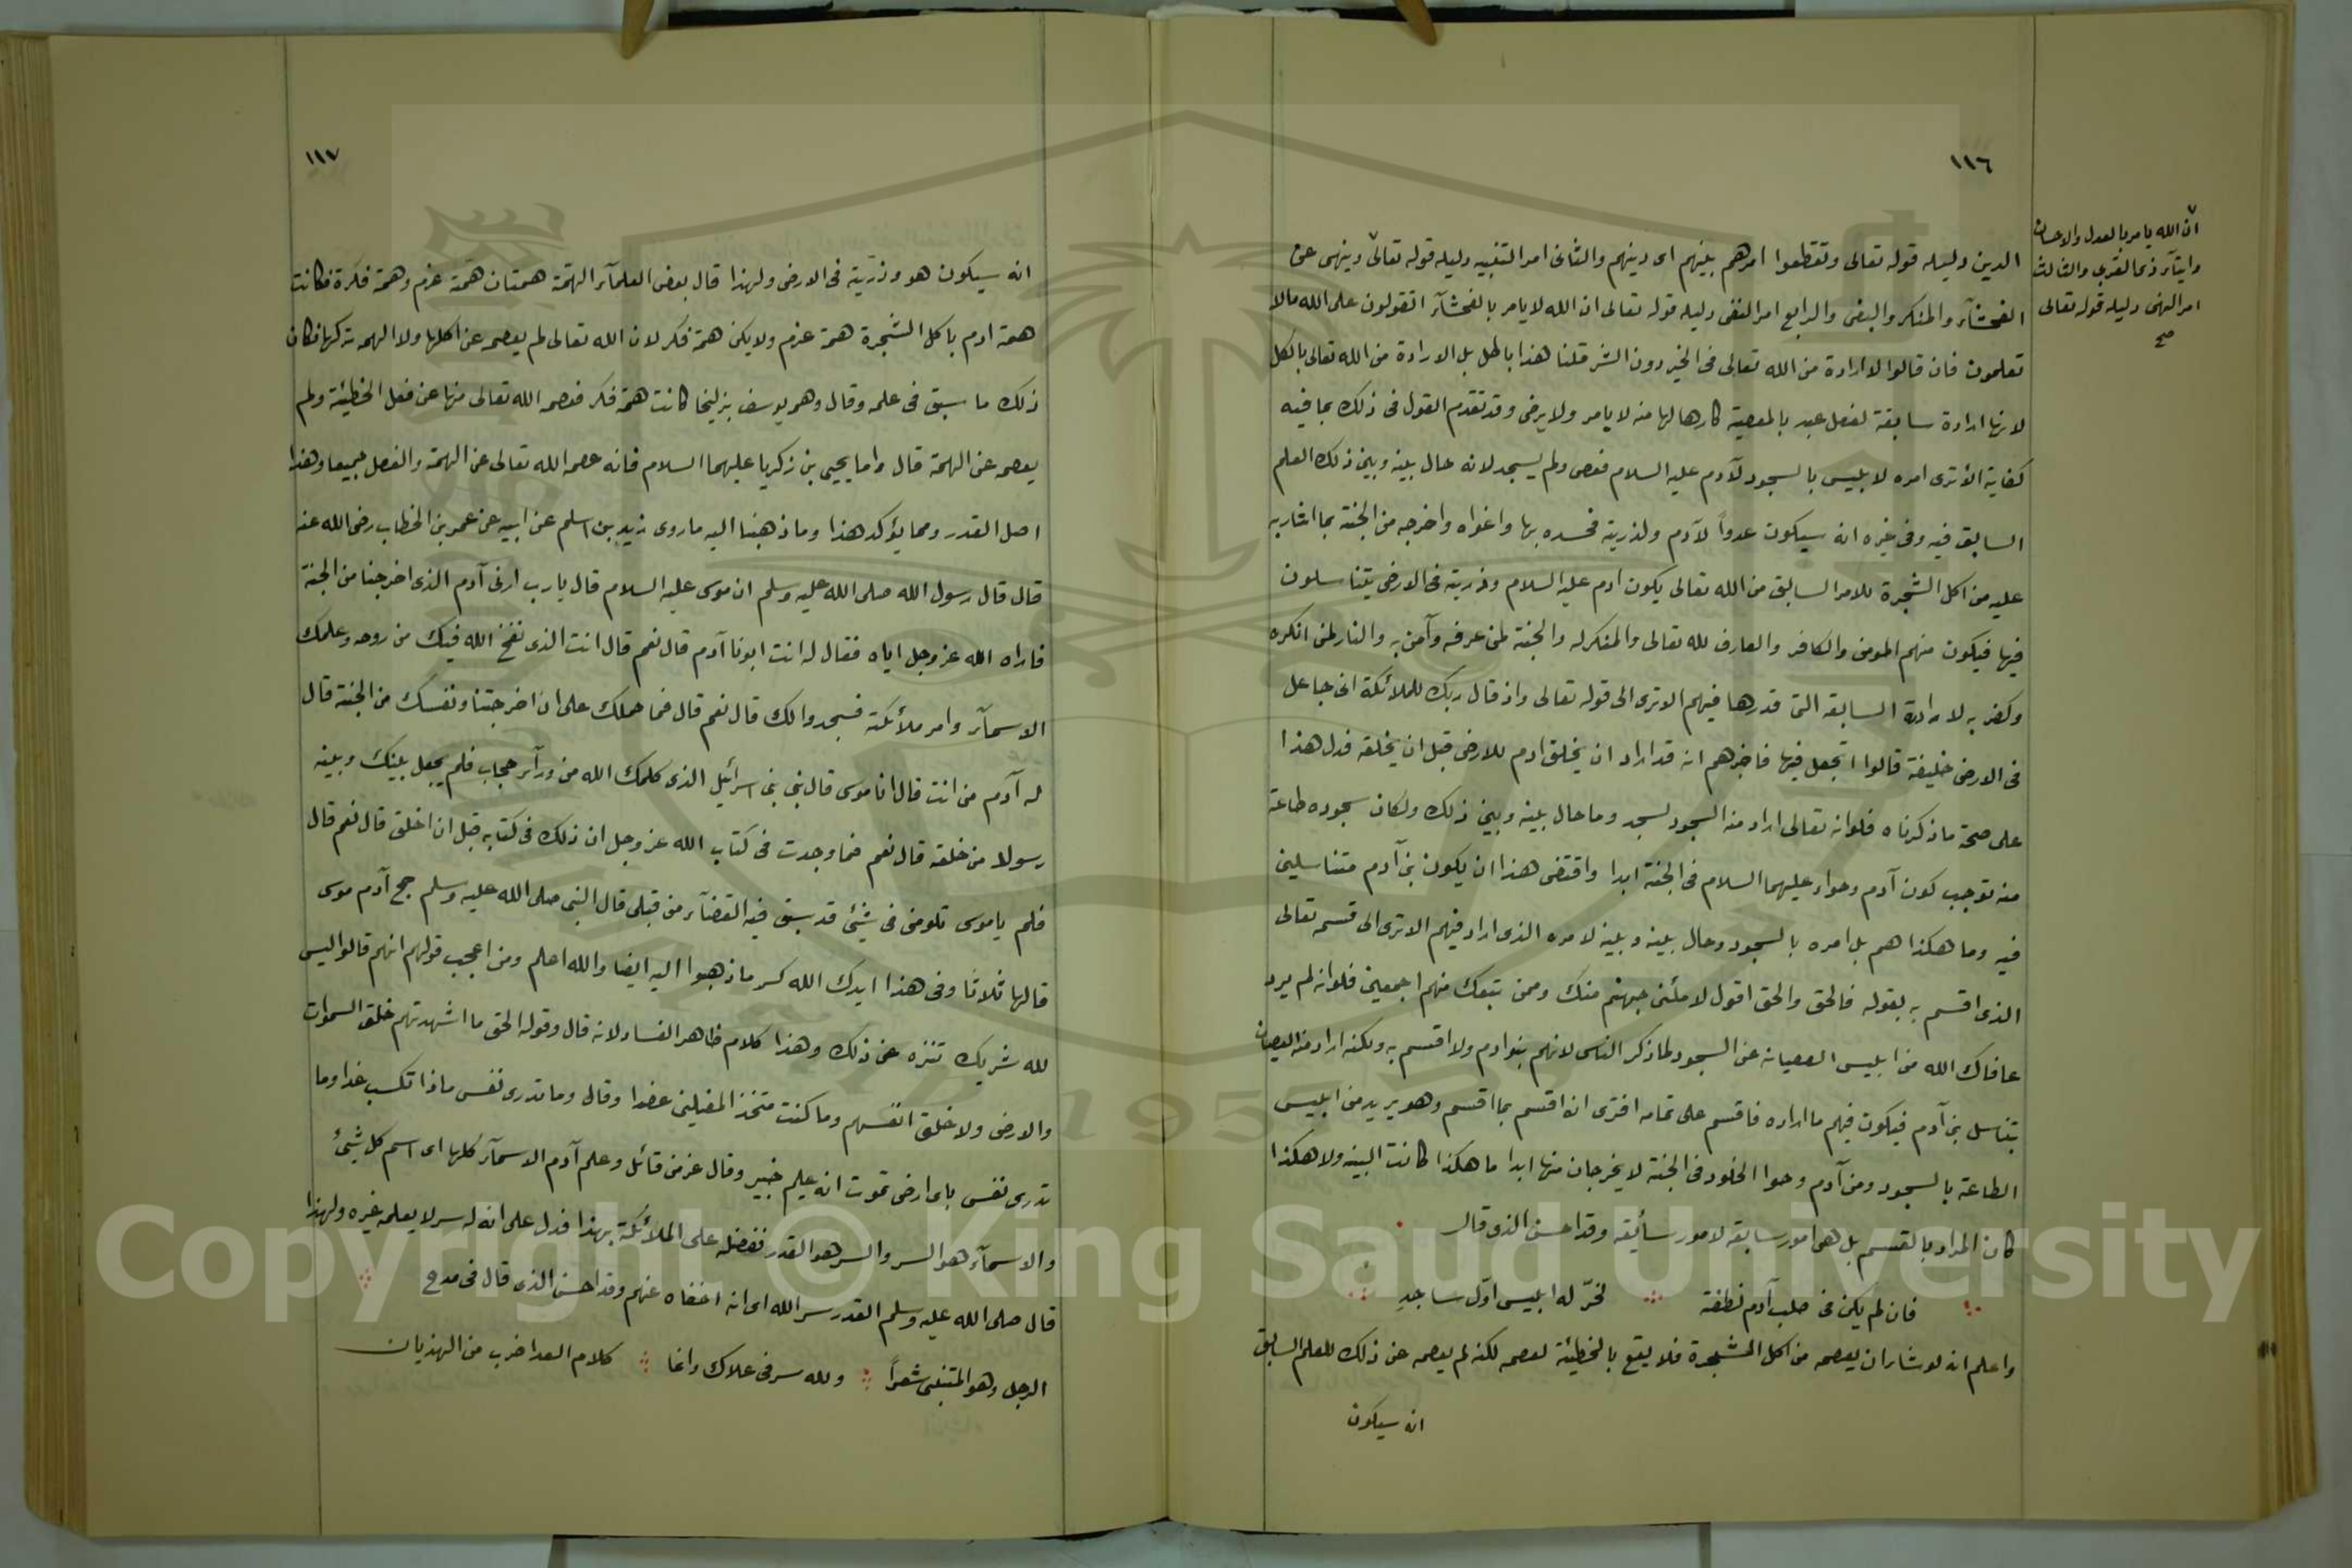 ١١٦
ان الله يامر بالعدل والاحسان
وايتآء ذى القربى والثالث
امر النهى دليله قوله تعالى
صح
الدين دليله قوله تعالى وتقطعوا امرهم بينهم اى دينهم والثانى امر التنبيه دليله قوله تعالى وينهى عن
الفحشآء والمنكر والبغى والرابع امر النفى دليله قوله تعالى ان الله لا يامر بالفحشآء اتقولون على الله مالا
تعلمون فان قالوا لا ارادة من الله تعالى فى الخير دون الشر قلنا هذا باطل بل الارادة من الله تعالى بالكل
لانها ارادة سابقة لفعل عبد بالمعصية كارها لها منه لا يامر ولا يرضى وقد تقدم القول فى ذلك بما فيه
كفاية الا ترى امره لابليس بالسجود لآدم عليه السلام فعصى ولم يسجد لانه حال بينه وبين ذلك العلم
السابق فيه وفى غيره انه سيكون عدواً لآدم ولذريته فحسده بها واغواه واخرجه من الجنة بما اشار به
عليه من اكل الشجرة للامر السابق من الله تعالى يكون ادم عليه السلام وذريته فى الارض يتناسلون
فيها فيكون منهم المومن والكافر والعارف لله تعالى والمنكر له والجنة لمن عرفه وآمن به والنار لمن انكره
وكفر به لارادة السابقة التى قدرها فيهم الا ترى الى قوله تعالى واذ قال ربك للملائكة انى جاعل
فى الارض خليفة قالوا اتجعل فيها فاخبرهم انه قد اراد ان يخلق ادم للارض قبل ان يخلقه فدل هذا
على صحة ما ذكرناه فلو انه تعالى اراد منه السجود لسجد وما حال بينه وبين ذلك ولكان سجوده طاعة
منه توجب كون آدم وحواء عليهما السلام فى الجنة ابدا واقتضى هذا ان يكون بنى آدم متناسلين
فيه وما هكذا هم بل امره بالسجود وحال بينه وبينه لامره الذى اراد فيهم الا ترى الى قسمه تعالى
الذى اقسم به بقوله فالحق والحق اقول لاملئن جهنم منك وممن تبعك منهم اجمعين فلو انه لم يرد
عافاك الله من ابليس العصيان عن السجود لما ذكر الناس لانهم بنوا دم ولا اقسم به ولكنه اراد منه العصيان
بتناسل بنى آدم فيكون فيهم ما اراده فاقسم على تمامه افترى انه اقسم بما اقسم وهو يريد من ابليس
الطاعة بالسجود ومن آدم وحوا الخلود فى الجنة لا يخرجان منها ابدا ما هكذا كانت البينه ولا هكذا
كان المراد بالقسم بل هى امور سابقة لامور سأيقه وقد احسن الذى قال
فان لم يكن فى صلب آدم نطفة لخرّ له ابليس اوّل ساجدِ
واعلم انه لو شاء ان يعصمه من اكل الشجرة فلا يقع بالخطيئة لعصمه لكنه لم يعصمه عن ذلك للعلم السابق
انه سيكون
١١٧
انه سيكون هو وذريّته فى الارض ولهذا قال بعض العلمآء الهمّة همتان همّة عزم وهمة فكرة فكانت
همة ادم باكل الشجرة همة عزم ولا يكن همة فكر لان الله تعالى لم يعصمه عن اكلها ولا الهمه تركها فكان
ذلك ما سبق فى علمه وقال وهم يوسف بزليخا كانت همة فكر فعصمه الله تعالى منها عن فعل الخطيئة ولم
يعصمه عن الهمة قال واما يحيى بن زكريا عليهما السلام فانه عصمه الله تعالى عن الهمة والفعل جميعا وهذا
اصل القدر ومما يؤكد هذا وما ذهبنا اليه ما روى زيد بن اسلم عن ابيه عن عمر بن الخطاب رضى الله عنه
قال قال رسول الله صلى الله عليه وسلم ان موسى عليه السلام قال يا رب ارنى آدم الذى اخرجنا من الجنة
فاراه الله عز وجل اياه فقال له انت ابونا آدم قال نعم قال انت الذى نفخ الله فيك من روحه وعلمك
الاسمآء وامر ملائكته فسجدوا لك قال نعم قال فما حملك على ان اخرجتنا ونفسك من الجنة قال
له آدم من انت قال انا موسى قال نبى بنى اسرائيل الذى كلمك الله من ورآء حجاب فلم يجعل بينك وبينه
رسولا من خلقه قال نعم فما وجدت فى كتاب الله عز وجل ان ذلك فى كتابه قبل ان اخلق قال نعم قال
فلم يا موسى تلومنى فى شيئ قد سبق فيه القضآء من قبلى قال النبى صلى الله عليه وسلم حج آدم موسى
قالها ثلاثا وفى هذا ايدك الله كسر ما ذهبوا اليه ايضا والله اعلم ومن اعجب قولهم انهم قالوا ليس
لله شريك تنزه عن ذلك وهذا كلام ظاهر الفساد لانه قال وقوله الحق ما اشهدتهم خلق السموات
والارض ولا خلق انفسهم وما كنت متخذ المضلين عضدا وقال وما تدرى نفس ماذا تكسب غدا وما
تدرى نفس باى ارض تموت انه عليم خبير وقال عز من قائل وعلم آدم الاسمآء كلها اى اسم كل شيئ
والاسمآء هو السر والسر هو القدر ففضله على الملائكة بهذا فدل على انه له سر لا يعلمه غيره ولهذا
قال صلى الله عليه وسلم القدر سر الله اى انه اخفاه عنهم وقد احسن الذى قال فى مدح
الرجل وهو المتنبى شعراً ولله سر فى علاك وانما كلام العدا ضرب من الهذيان
Copyright © King Saud University
1957